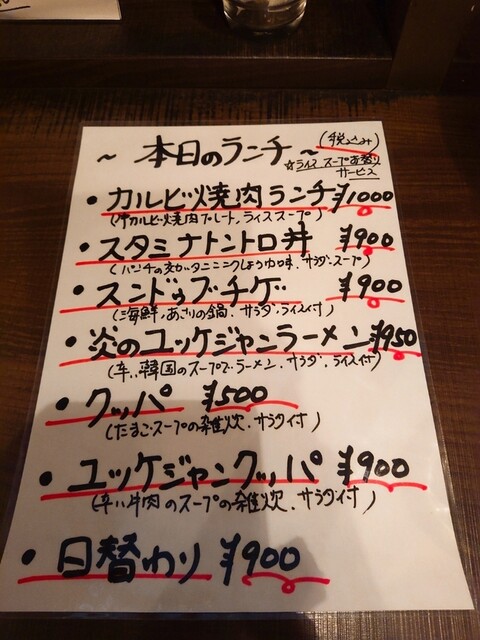 ～ 本日のランチ ～ (税込み)
☆ライス スープお替り
サービス
・カルビ焼肉ランチ ¥1000
(牛カルビ焼肉プレート,ライススープ)
・スタミナトントロ丼 ¥900
(パンチの効いたニンニクしょうゆ味.サラダ.スープ)
・スンドゥブチゲ ¥900
(海鮮,あさりの鍋.サラダ,ライス付)
・炎のユッケジャンラーメン ¥950
(辛い韓国のスープで・ラーメン.サラダ.ライス付)
・クッパ ¥500
(たまごスープの雑炊.サラダ付)
・ユッケジャンクッパ ¥900
(辛い牛肉のスープの雑炊.サラダ付)
・日替わり ¥900